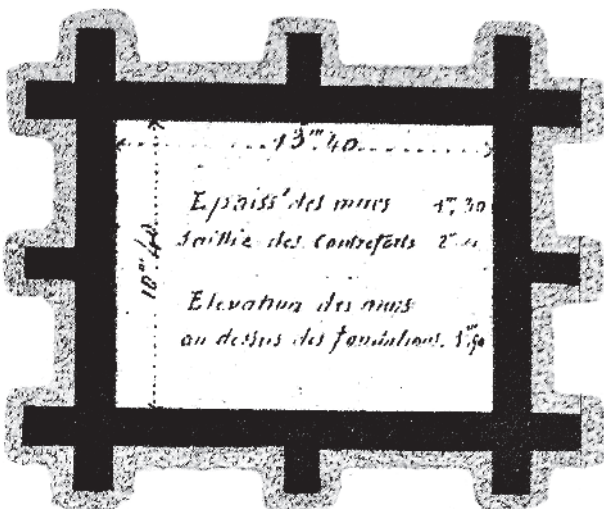 13ᵐ,40
10ᵐ,40
Epaissʳ des murs 1ᵐ,30
Saillie des Contreforts 2ᵐ
Elevation des murs
au dessus des fondations.